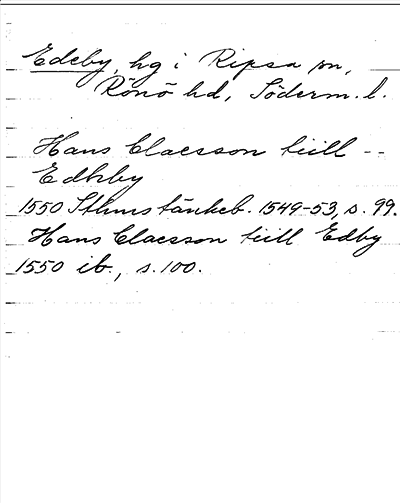 Edeby, hg i Ripsa sn,
Rönö hd, Söderm. l.
Hans Claesson tiill --
Edhby
1550 Sthms tänkeb. 1549-53, s. 99.
Hans Claesson tiill Edby
1550 ib., s. 100.